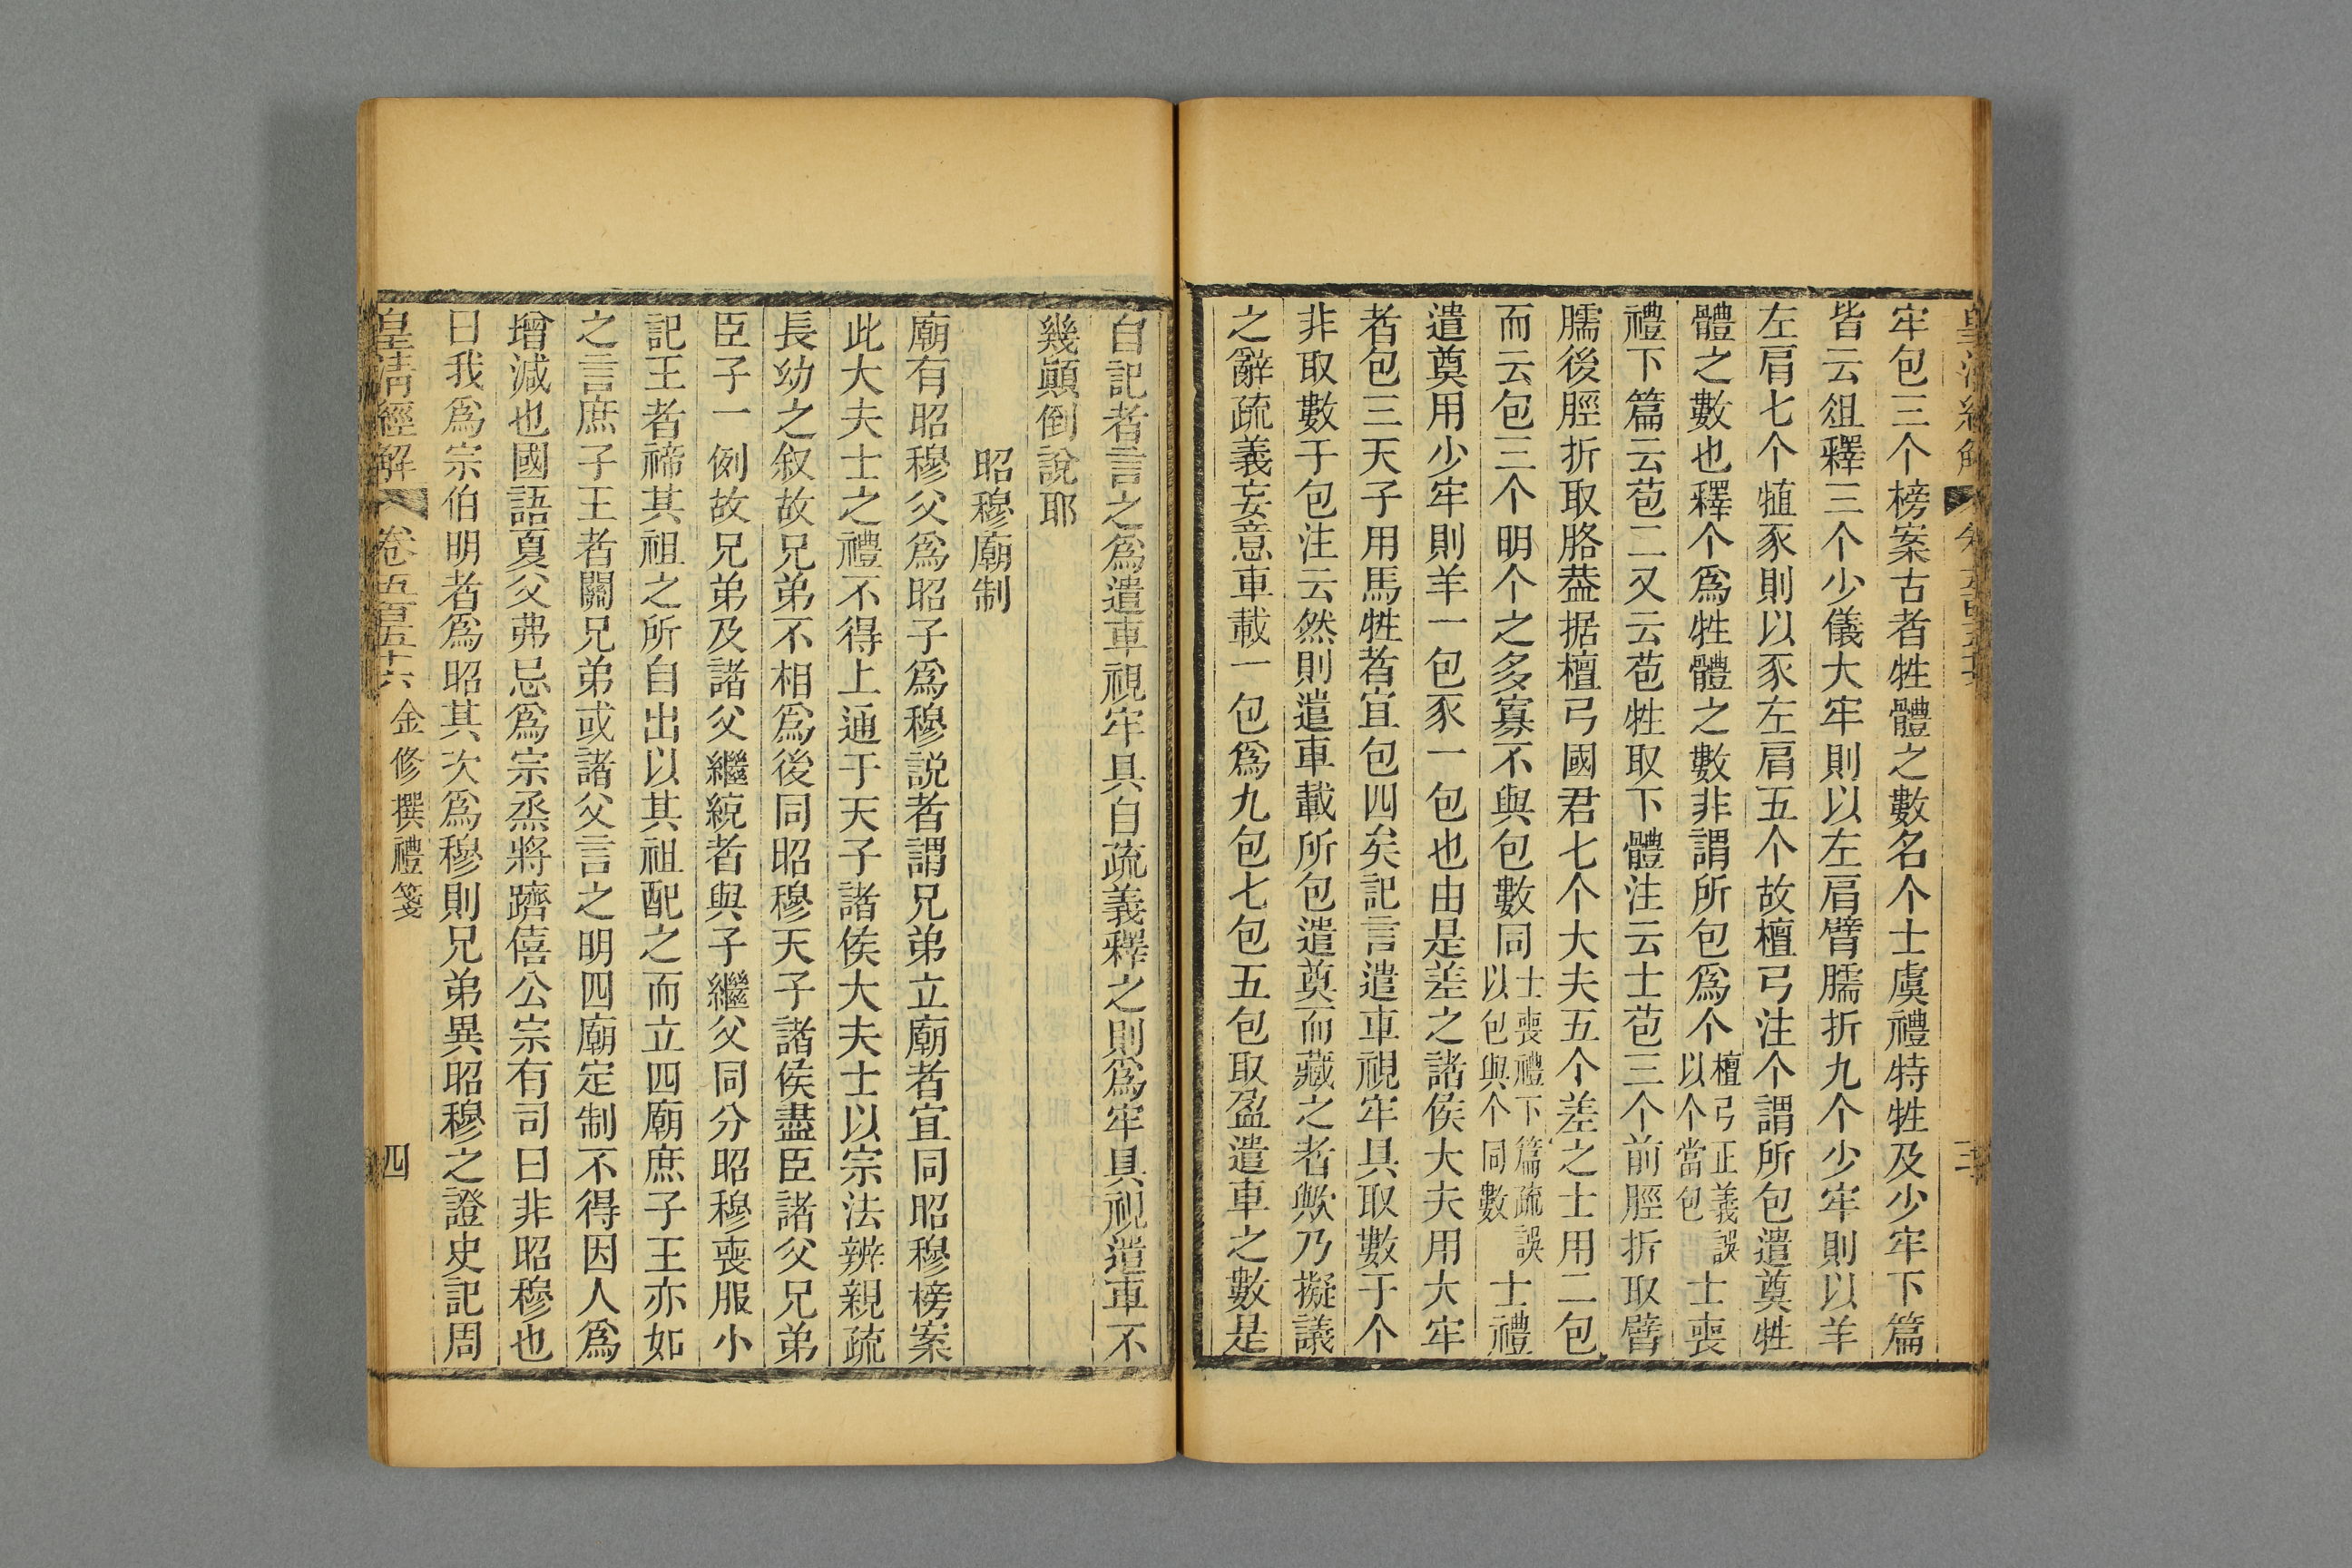 牢包三个榜案古者牲體之數名个士虞禮特牲及少牢下篇
皆云俎釋三个少儀大牢則以左肩臂臑折九个少牢則以羊
左肩七个犆豕則以豕左肩五个故檀弓注个謂所包遣奠牲
體之數也釋个爲牲體之數非謂所包爲个檀弓正義誤以个當包士喪
禮下篇云苞二又云苞牲取下體注云士苞三个前脛折取臂
臑後脛折取胳葢据檀弓國君七个大夫五个差之士用二包
而云包三个明个之多寡不與包數同士喪禮下篇疏誤以包與个同數士禮
遣奠用少牢則羊一包豕一包也由是差之諸侯大夫用大牢
者包三天子用馬牲者宜包四矣記言遣車視牢具取數于个
非取數于包注云然則遣車載所包遣奠而藏之者歟乃擬議
之辭疏義妄意車載一包爲九包七包五包取盈遣車之數是
自記者言之爲遣車視牢具自疏義釋之則爲牢具視遣車不
幾顚倒說耶
昭穆廟制
廟有昭穆父爲昭子爲穆説者謂兄弟立廟者宜同昭穆榜案
此大夫士之禮不得上通于天子諸侯大夫士以宗法辨親疏
長幼之叙故兄弟不相爲後同昭穆天子諸侯盡臣諸父兄弟
臣子一例故兄弟及諸父繼統者與子繼父同分昭穆喪服小
記王者禘其祖之所自出以其祖配之而立四廟庶子王亦如
之言庶子王者關兄弟或諸父言之明四廟定制不得因人爲
增減也國語夏父弗忌爲宗烝將躋僖公宗有司曰非昭穆也
曰我爲宗伯明者爲昭其次爲穆則兄弟異昭穆之證史記周
皇清經解 卷五百五十六 金修撰禮箋 四